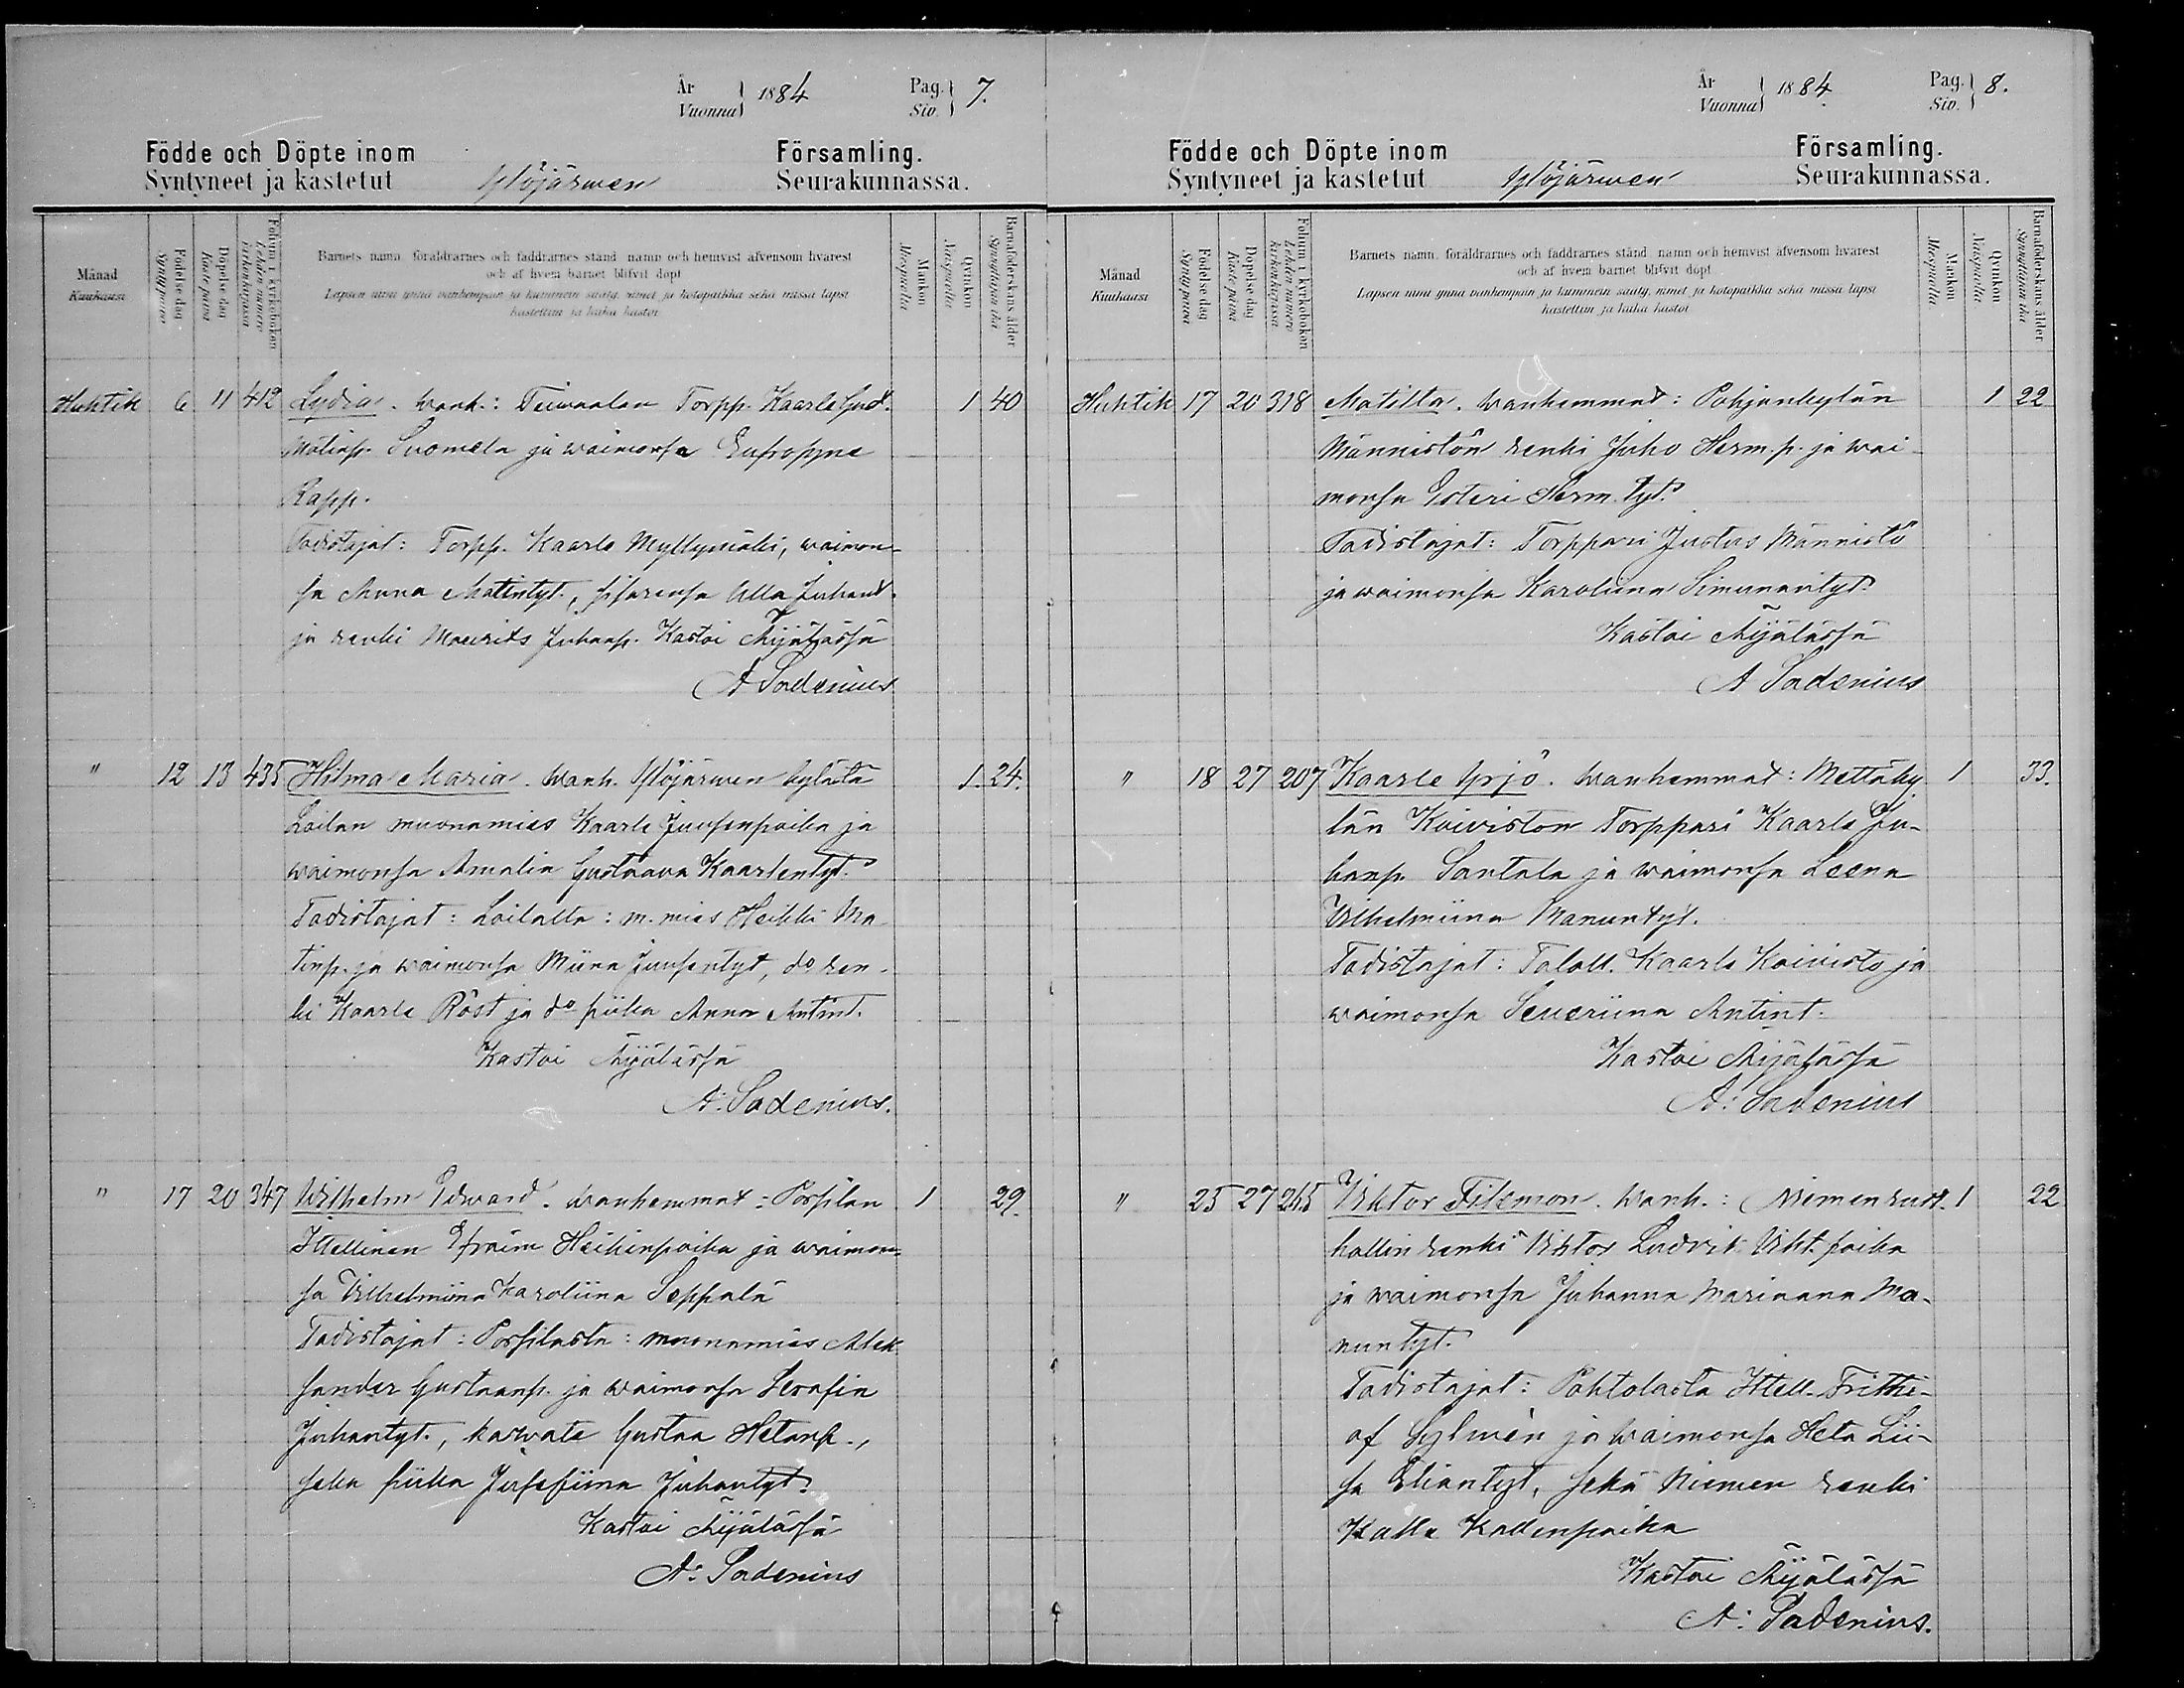 År
Vuonna
1884
Pag.
Siv.
7.
Födde och Döpte inom
Syntyneet ja kastetut
Ylöjärwen
Församling.
Seurakunnassa.
Månad
Kuukausi
Födelse dag
Synty päivä
Döpelse dag
Kaste päivä
Folium i kyrkoboken
Lehden numero kirkonkirjassa
Barnets namn, föräldrarnes och faddrarnes stånd, namn och hemvist äfvensom hvarest
och af hvem barnet blifvit döpt
Lapsen nimi ynnä vanhempain ja kummein sääty, nimet ja kotopaikka sekä missä lapsi
kastettiin ja kuka kastoi
Mankön
Miespuolia
Qvinkön
Naispuolia
Barnaföderskans ålder
Synnyttävän ikä
Huhtik 6 11 412 Lydia. Wanh.: Teiwaalan Torpp. Kaarle Gust. 1 40
Matinp. Suomela ja waimonsa Eufrosyne
Rapp.
Todistajat: Torpp. Kaarle Myllymäki, waimon-
sa Anna Matintyt., sisarensa Ulla Juhant.
ja renki Maurits Juhanp. Kastoi Äijälässä
A Sadenius
" 12 13 435 Hilma Maria. Wanh. Ylöjärwen kylästä 1. 24.
Loilan muonamies Kaarle Juusenpoika ja
waimonsa Amalia Gustaava Kaarlentyt.
Todistajat: Loilalta: m. mies Heikki Ma
tinp. ja waimonsa Miina Juusentyt, do ren-
ki Kaarle Röst ja do piika Anna Antint.
Kastoi Äijälässä
A. Sadenius.
" 17 20 347 Wilhelm Edward. Wanhemmat: Porsilan 1 29.
Itellinen Efraim Heikinpoika ja waimon-
sa Vilhelmiina Karoliina Seppälä
Todistajat: Porsilasta: muonamies Alek
sander Gustaanp. ja waimonsa Serafia
Juhantyt., karwate Gustaa Hetanp.,
seka piika Jusefiina Juhantyt.
Kastoi Äijälässä
A: Sadenius
År
Vuonna
1884.
Pag.
Siv.
8.
Födde och Döpte inom
Syntyneet ja kastetut
Ylöjärwen
Församling.
Seurakunnassa.
Månad
Kuukausi
Födelse dag
Synty päivä
Döpelse dag
Kaste päivä
Folium i kyrkoboken
Lehden numero kirkonkirjassa
Barnets namn, föräldrarnes och faddrarnes stånd, namn och hemvist äfvensom hvarest
och af hvem barnet blifvit döpt
Lapsen nimi ynnä vanhempain ja kummein sääty, nimet ja kotopaikka sekä missä lapsi
kastettiin ja kuka kastoi
Mankön
Miespuolia
Qvinkön
Naispuolia
Barnaföderskans ålder
Synnyttävän ikä
Huhtik 17 20 318 Matilta. Wanhemmat: Pohjankylän 1 22
Männistön renki Juho Herm. p. ja wai-
monsa Esteri Herm. tyt.
Todistajat: Torppari Justus Männistö
ja waimonsa Karoliina Simunantyt.
Kastoi Äijälässä
A Sadenius
" 18 27 207 Kaarle Yrjö. Wanhemmat: Mettäky 1 33.
län Koiviston Torppari Kaarle Ju-
hanp. Santala ja waimonsa Leena
Vilhelmiina Manuntyt.
Todistajat: Taloll. Kaarle Koivisto ja
waimonsa Seweriina Antint.
Kastoi Äijälässä
A: Sadenius
" 25 27 265 Viktor Filemon. Wanh.: Niemen rust. 1 22
hollin renki Viktor Ludvik Vikt. poika
ja waimonsa Juhanna Mariaana Ma-
nuntyt.
Todistajat: Pohtolasta Itell. Frithi-
of Sylwén ja waimonsa Heta Lii-
sa Eliantyt, sekä Niemen renki
Kalle Kallenpoika
Kastoi Äijälässä
A: Sadenius.